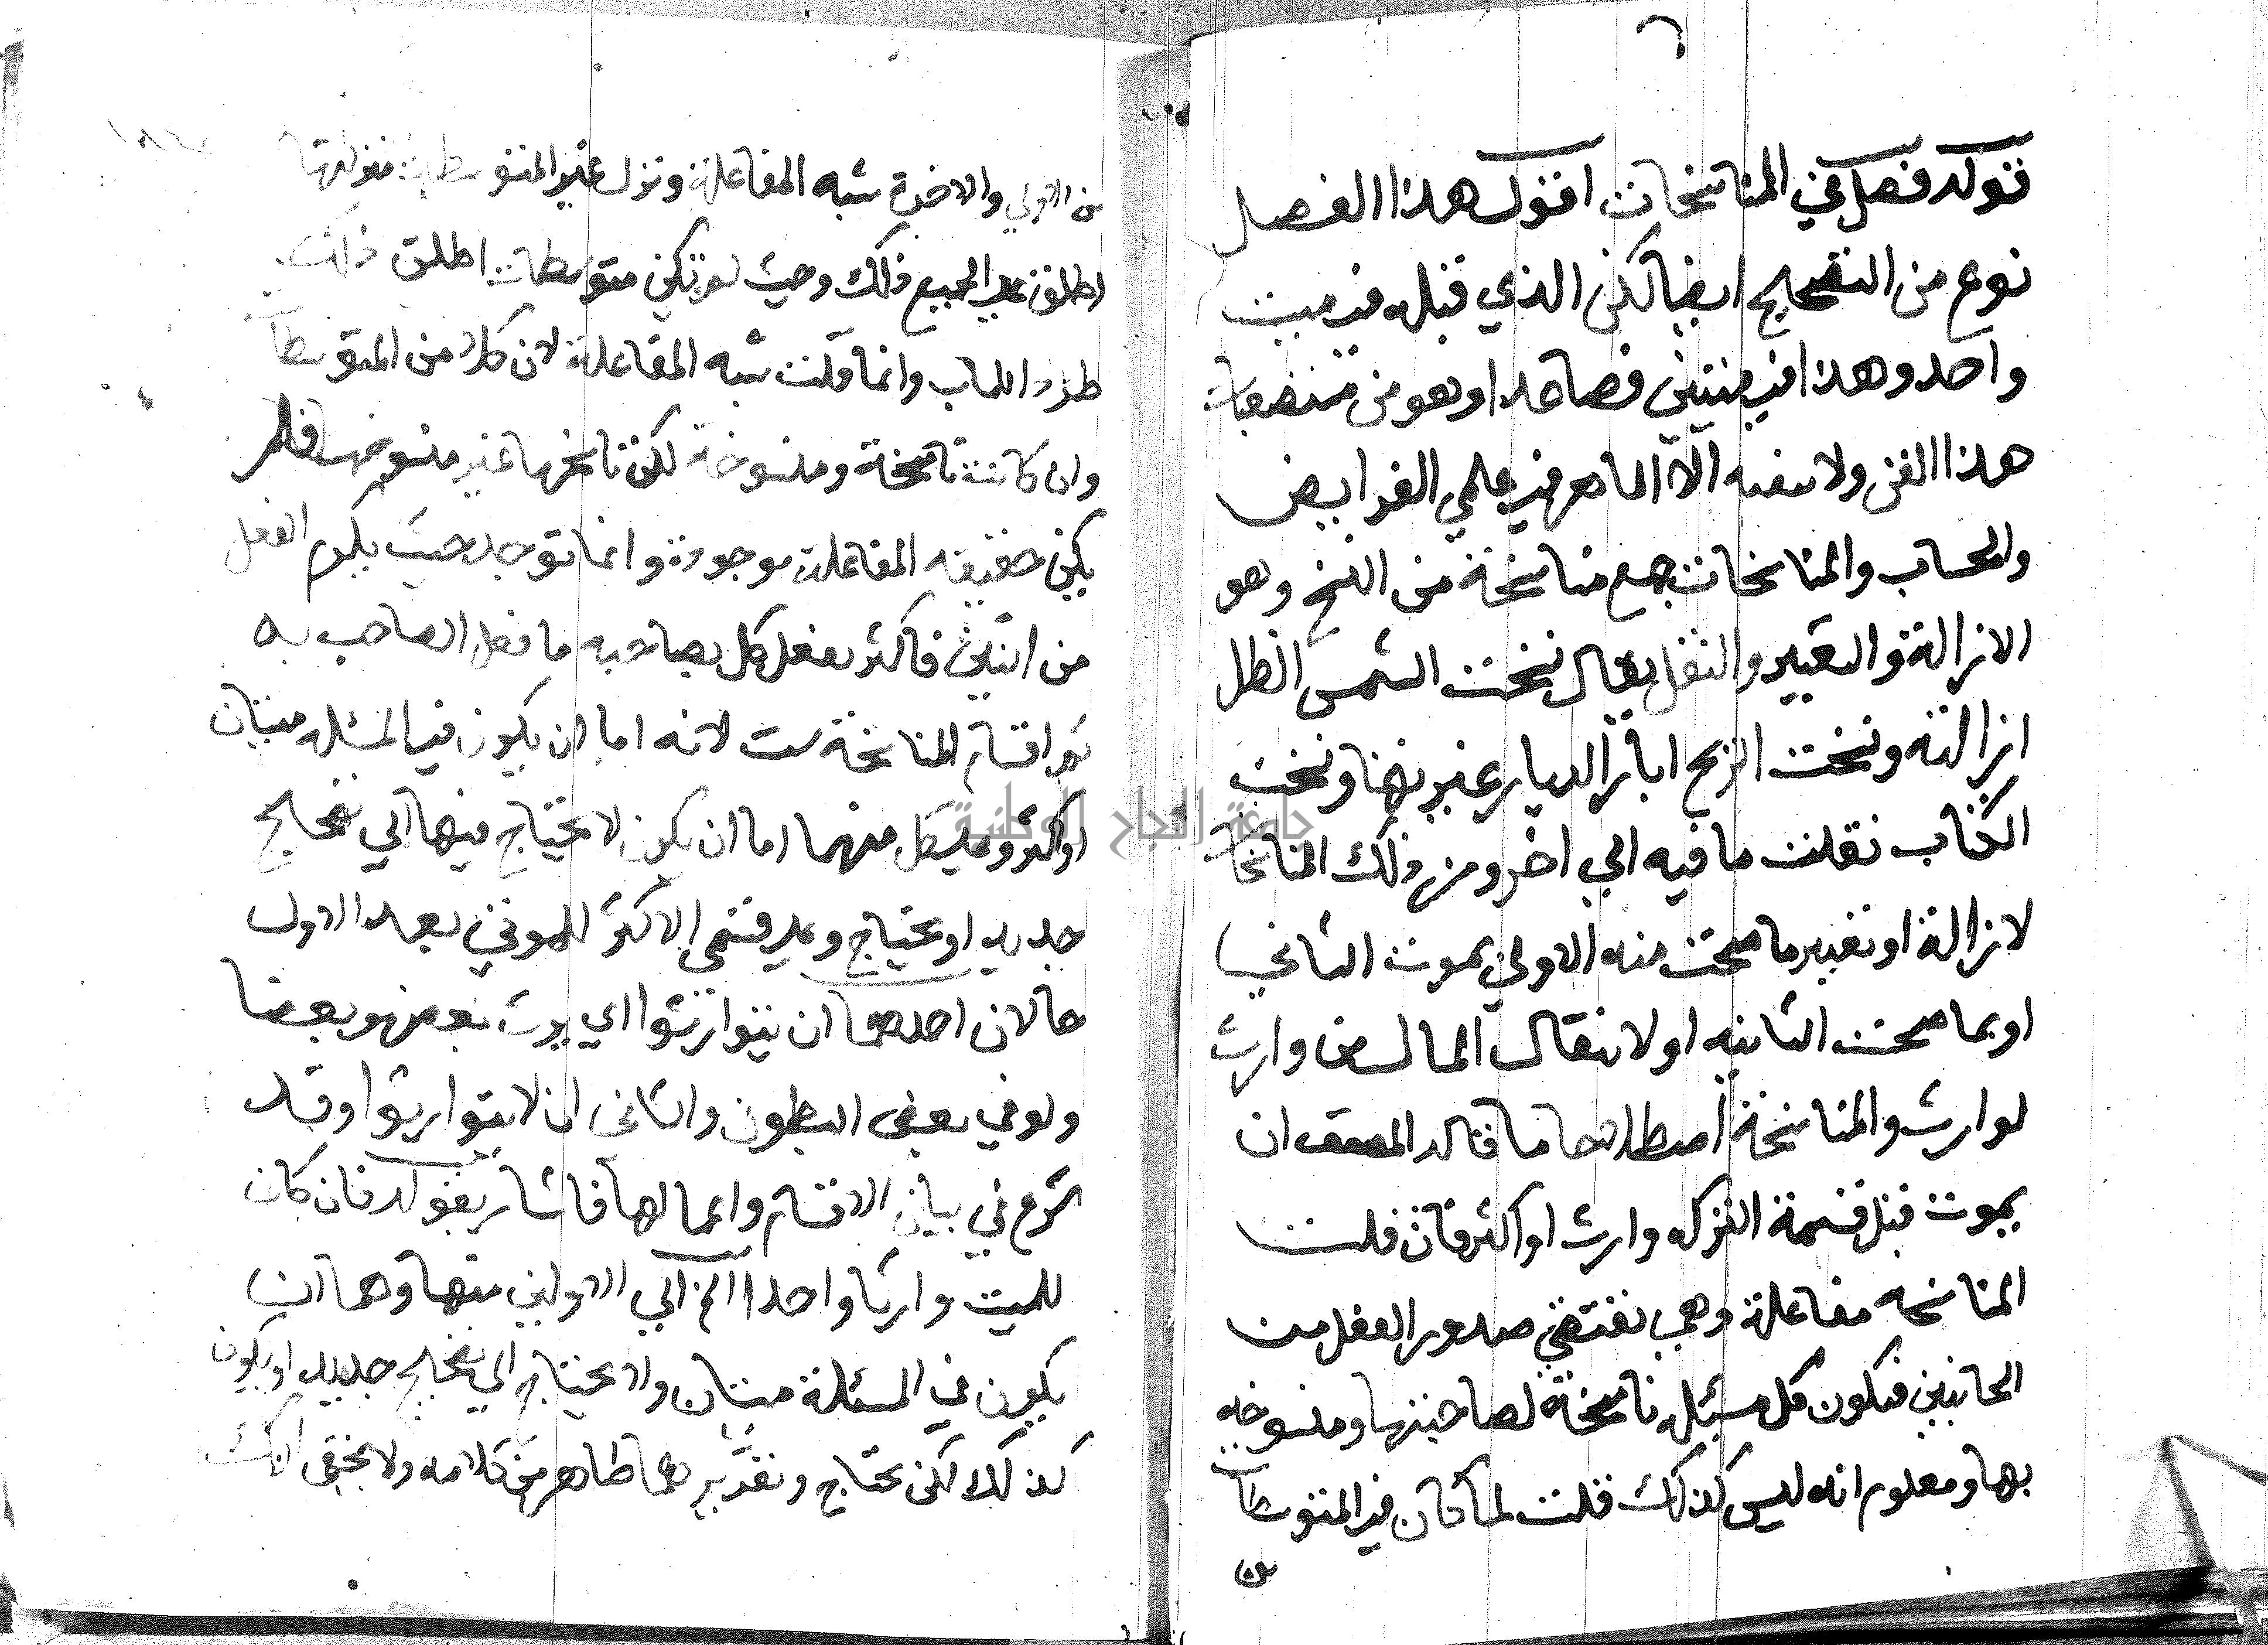 قوله فصل في المناسخات اقول هذا الفصل
نوع من التصحيح ايضا لكن الذي قبله في ميت
واحد وهذا في ميتين فصاعدا وهو من مستصعبات
هذا الفن ولا يتقنه الا الماهر في علمي الفرايض
والحساب والمناسخات جمع مناسخة من النسخ وهو
الازالة والتغيير والنقل يقال نسخت الشمس الظل
ازالته ونسخت الريح اثار الديار غيرتها ونسخت
الكتاب نقلت ما فيه الي اخر ومن ذلك المناسخات
لازالة او تغيير ما صحت منه الاولي بموت الثاني
او بما صحت الثانيه او لانتقال المال من وارث
لوارث والمناسخة اصطلاحا ما قاله المصنف ان
يموت قبل قسمة التركه وارث او اكثر فان قلت
المناسخه مفاعلة وهي تقتضي صدور الفعل من
الجانبين فتكون كل مسئله ناسخة لصاحبتها ومنسوخه
بها ومعلوم انه ليس كذلك قلت لما كان في المتوسطات
من
من الاولي والاخيرة شبه المفاعلة ونزل غير المتوسطات منزلتها
اطلق علي الجميع ذلك وحيث لم تكن متوسطات اطلق ذلك
طردا للباب وانما قلت شبه المفاعلة لان كلا من المتوسطات
وان كانت ناسخة ومنسوخة لكن ناسخها غير منسوخها فلم
يكن حقيقه المفاعلة موجودة وانما توجد حيث يكون الفعل
من اثنين فاكثر يفعل كل بصاحبه ما فعل الصاحب به
ثم اقسام المناسخة ست لانه اما ان يكون في المسئله ميتان
او اكثر وعلي كل منهما اما ان يكون لا يحتاج فيها الي تصحيح
جديد او يحتاج وعلي قسمي الاكثر للموتي بعد الاول
حالان احدهما ان يتوارثوا اي يرث بعضهم بعضا
ولو في بعض البطون والثاني ان لا يتوارثوا وقد
شرع في بيان الاقسام واعمالها فاشار بقوله فان كان
للميت وارثا واحدا الخ الي الاولين منها وهما ان
يكون في المسئلة ميتان ولا يحتاج الي تصحيح جديد او يكون
كذلك لكن يحتاج وتقدير هما ظاهر من كلامه ولا يخفى انك
جامعة النجاح الوطنية